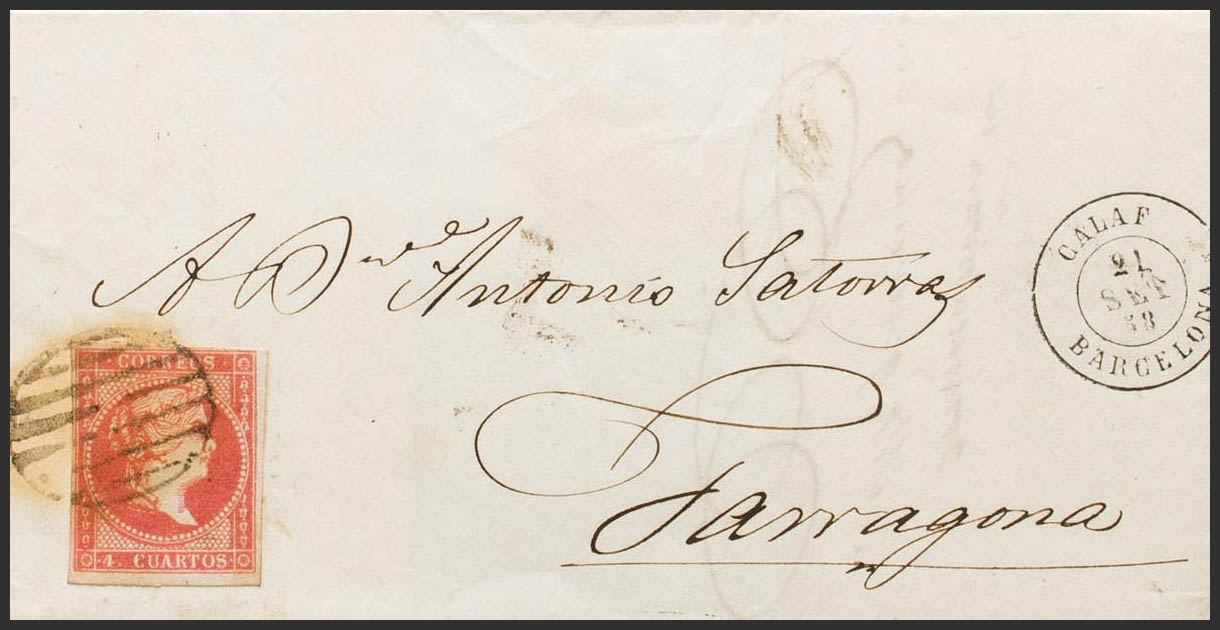 A Dn de Antonio Satorras
Tarragona
CORREOS
4 CUARTOS
CALAF
21
SET
58
BARCELONA